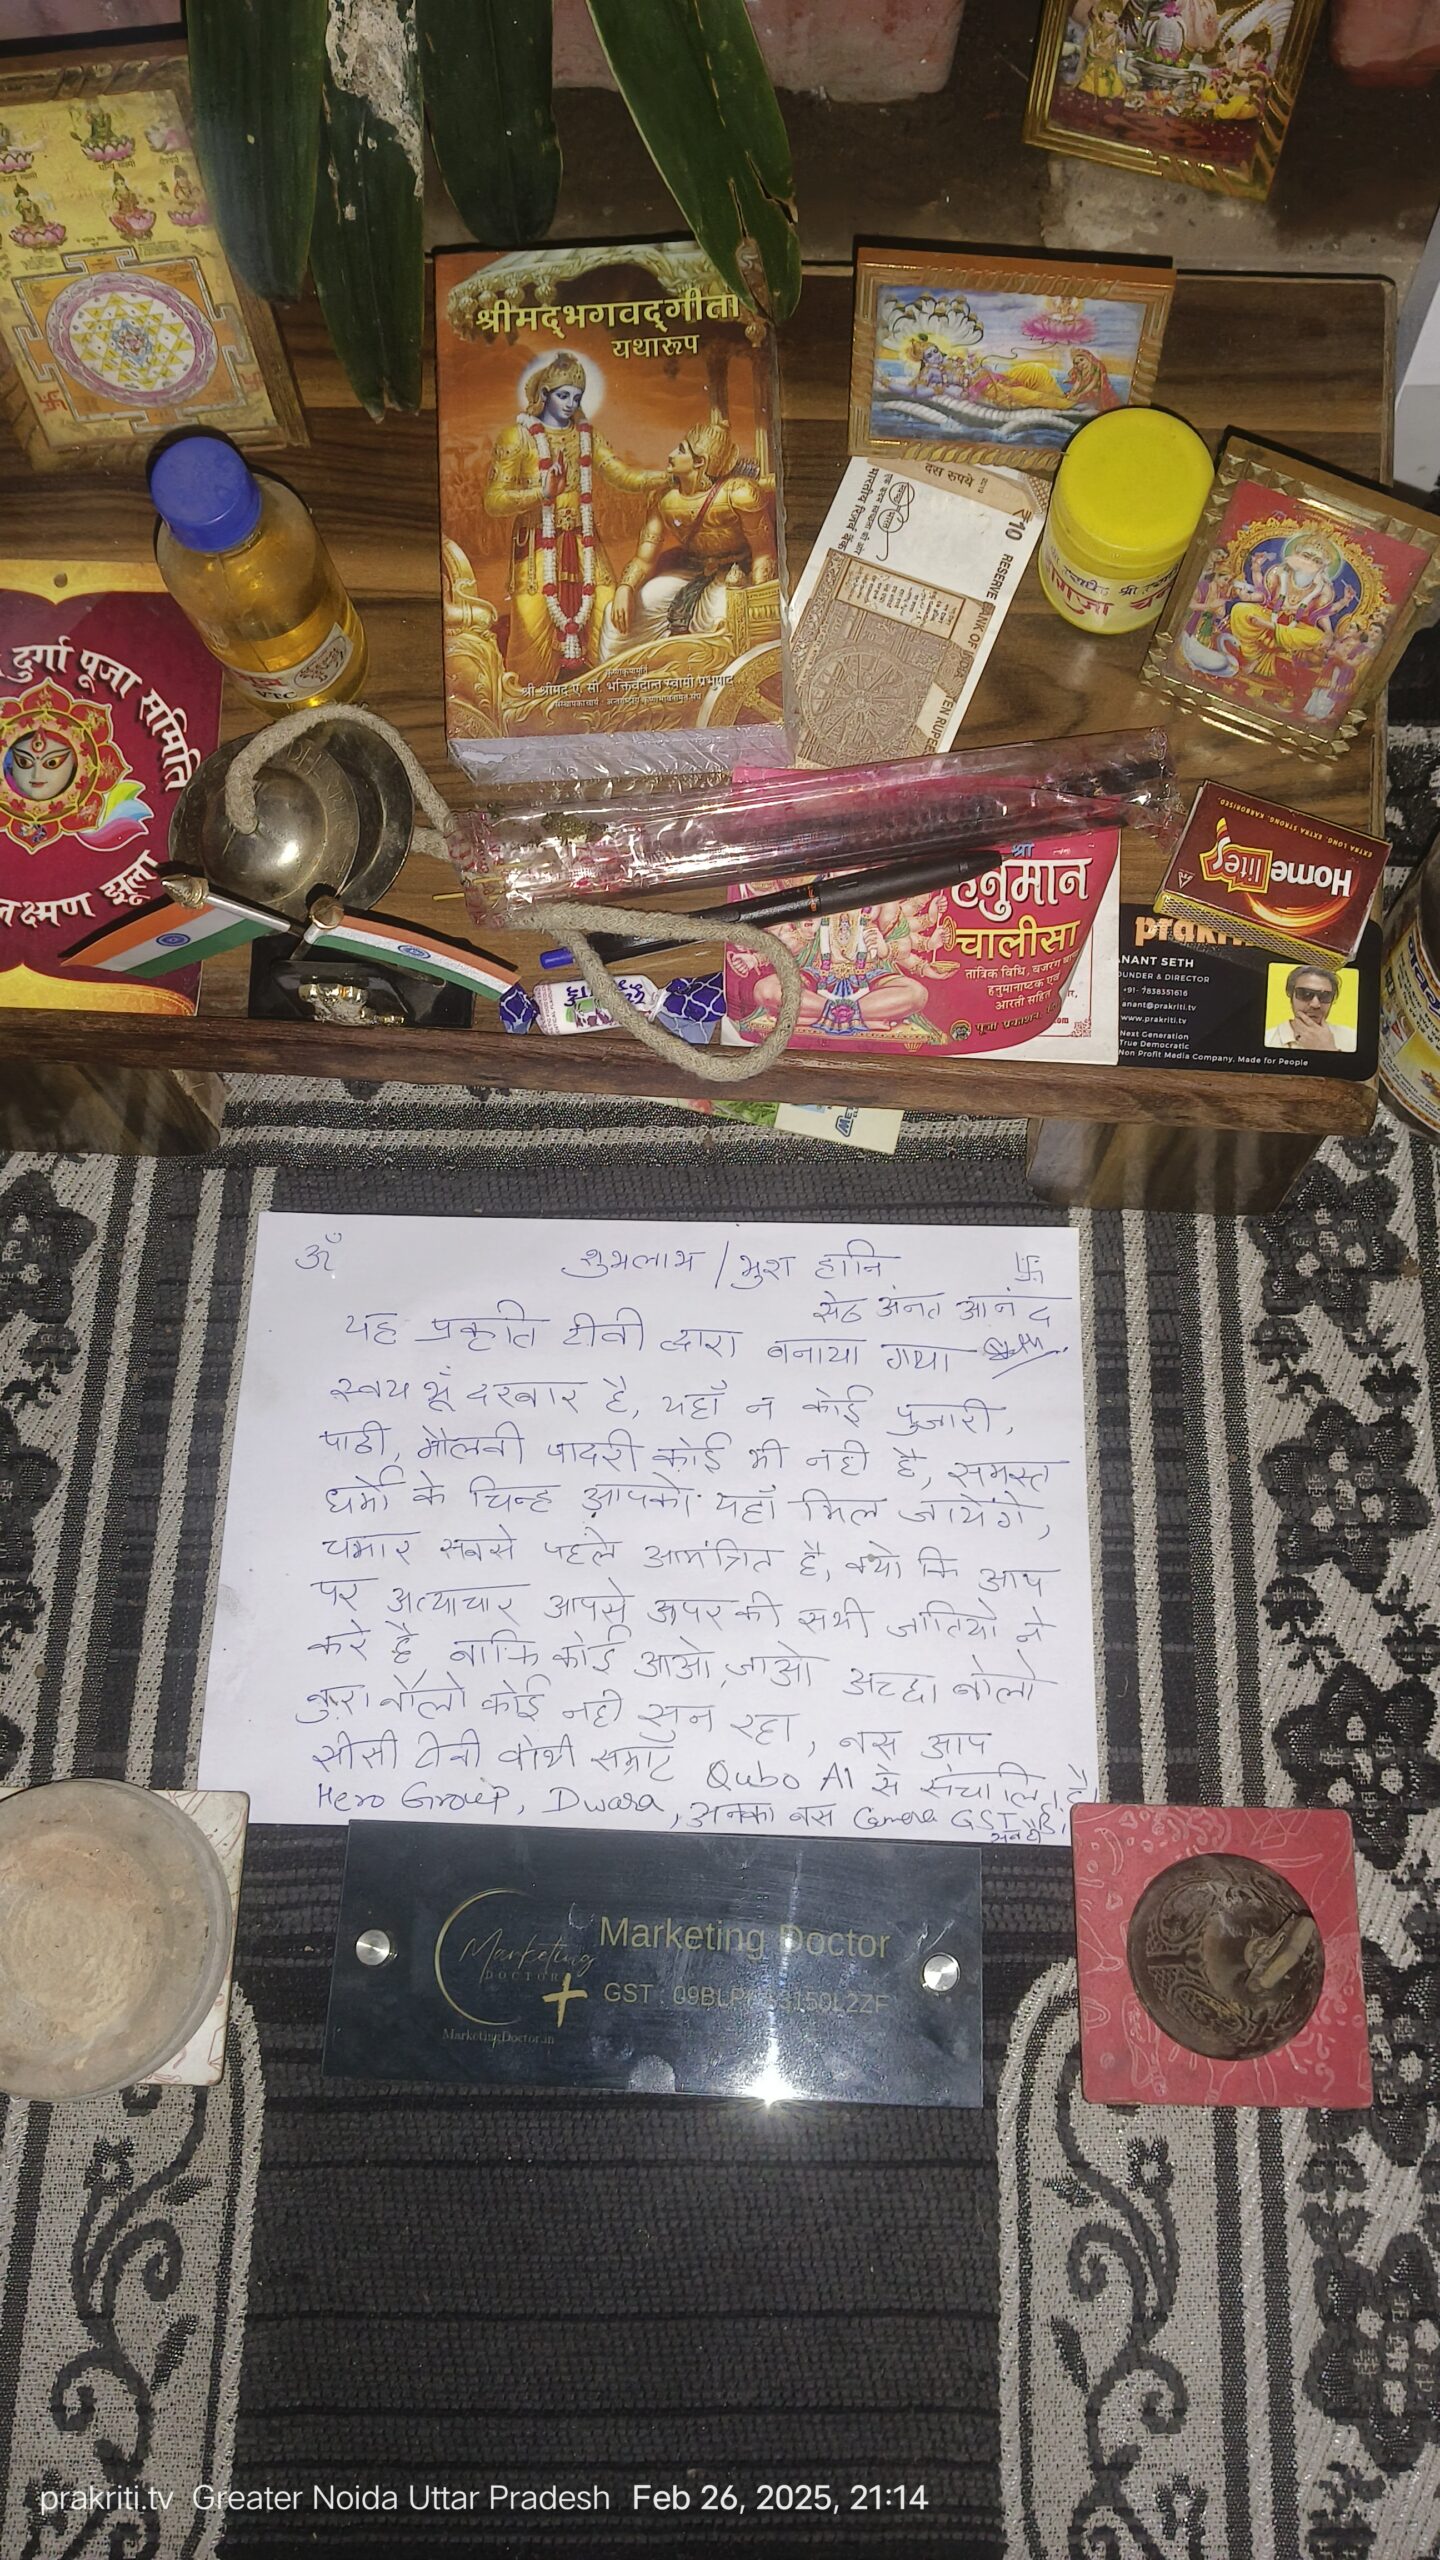 श्रीमद्भगवद्गीता
यथारूप
कृष्णकृपामूर्ति
श्री श्रीमद् ए. सी. भक्तिवेदान्त स्वामी प्रभुपाद
दस रुपये
₹10 RESERVE BANK OF INDIA
TEN RUPEES
दुर्गा पूजा समिति
लक्ष्मण झूला
VTC
EXTRA LONG, EXTRA STRONG, KARBORISED.
Home lites
श्री
हनुमान
चालीसा
तांत्रिक विधि, बजरंग बाण
हनुमानाष्टक एवं
आरती सहित
पूजा प्रकाशन
ANANT SETH
FOUNDER & DIRECTOR
+91- 7838351616
anant@prakriti.tv
www.prakriti.tv
Next Generation
True Democratic
Non Profit Media Company, Made for People
ॐ शुभलाभ / भुश हानि 卐
सेठ अंनत आनंद
यह प्रकृति टीवी द्वारा बनाया गया
स्वयं भूँ दरबार है, यहाँ न कोई पुजारी,
पाठी, मौलवी पादरी कोई भी नही है, समस्त
धर्मो के चिन्ह आपको यहाँ मिल जायेंगे,
चमार सबसे पहले आमंत्रित है, क्यो कि आप
पर अत्याचार आपसे ऊपर की सभी जातियो ने
करे है बाकि कोई आओ, जाओ अच्छा बोलो
बुरा बोलो कोई नही सुन रहा, बस आप
सीसी टीवी सम्राट Qubo AI से संचालित है
Hero Group, Dwara, उनका बस Camera GST
Marketing
DOCTOR
MarketingDoctor.in
Marketing Doctor
GST : 150L2ZF
prakriti.tv Greater Noida Uttar Pradesh Feb 26, 2025, 21:14